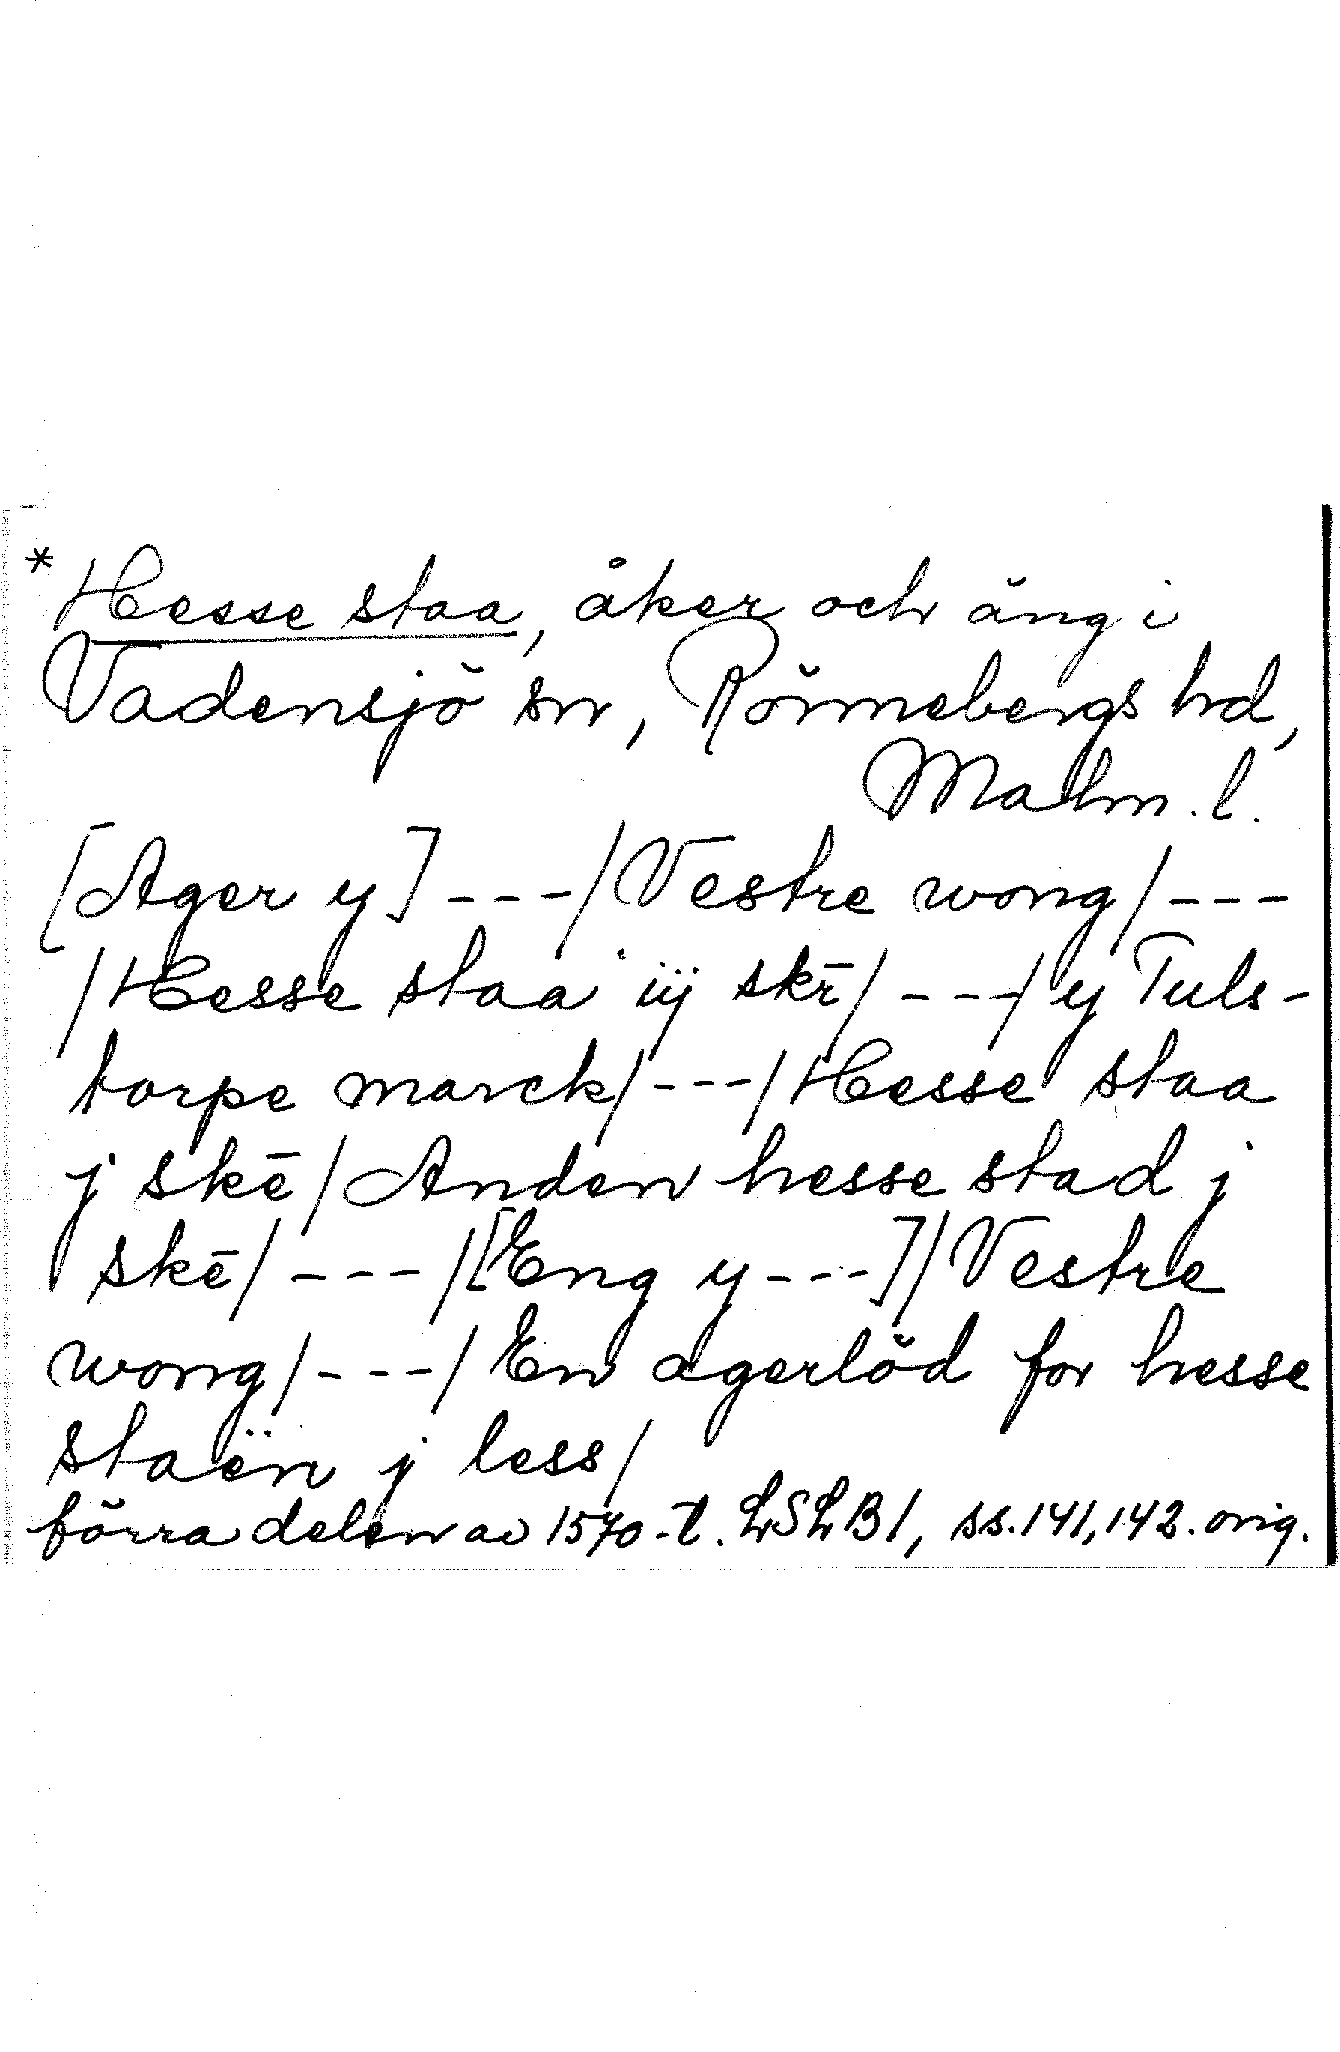 * Hesse staa, åker och äng i
Vadensjö sn, Rönnebergs hd,
Malm. l.
[Ager y] --- / Vestre wong / ---
/ Hesse staa iij skr̄ / --- / y Tuls-
torpe marck / --- / Hesse staa
j skē / Anden hesse stad j
skē / --- / [Eng y ---] / Vestre
wong / --- / En agerlöd for hesse
staën j less /
förra delen av 1570-t. LSLB 1, ss. 141, 142. orig.